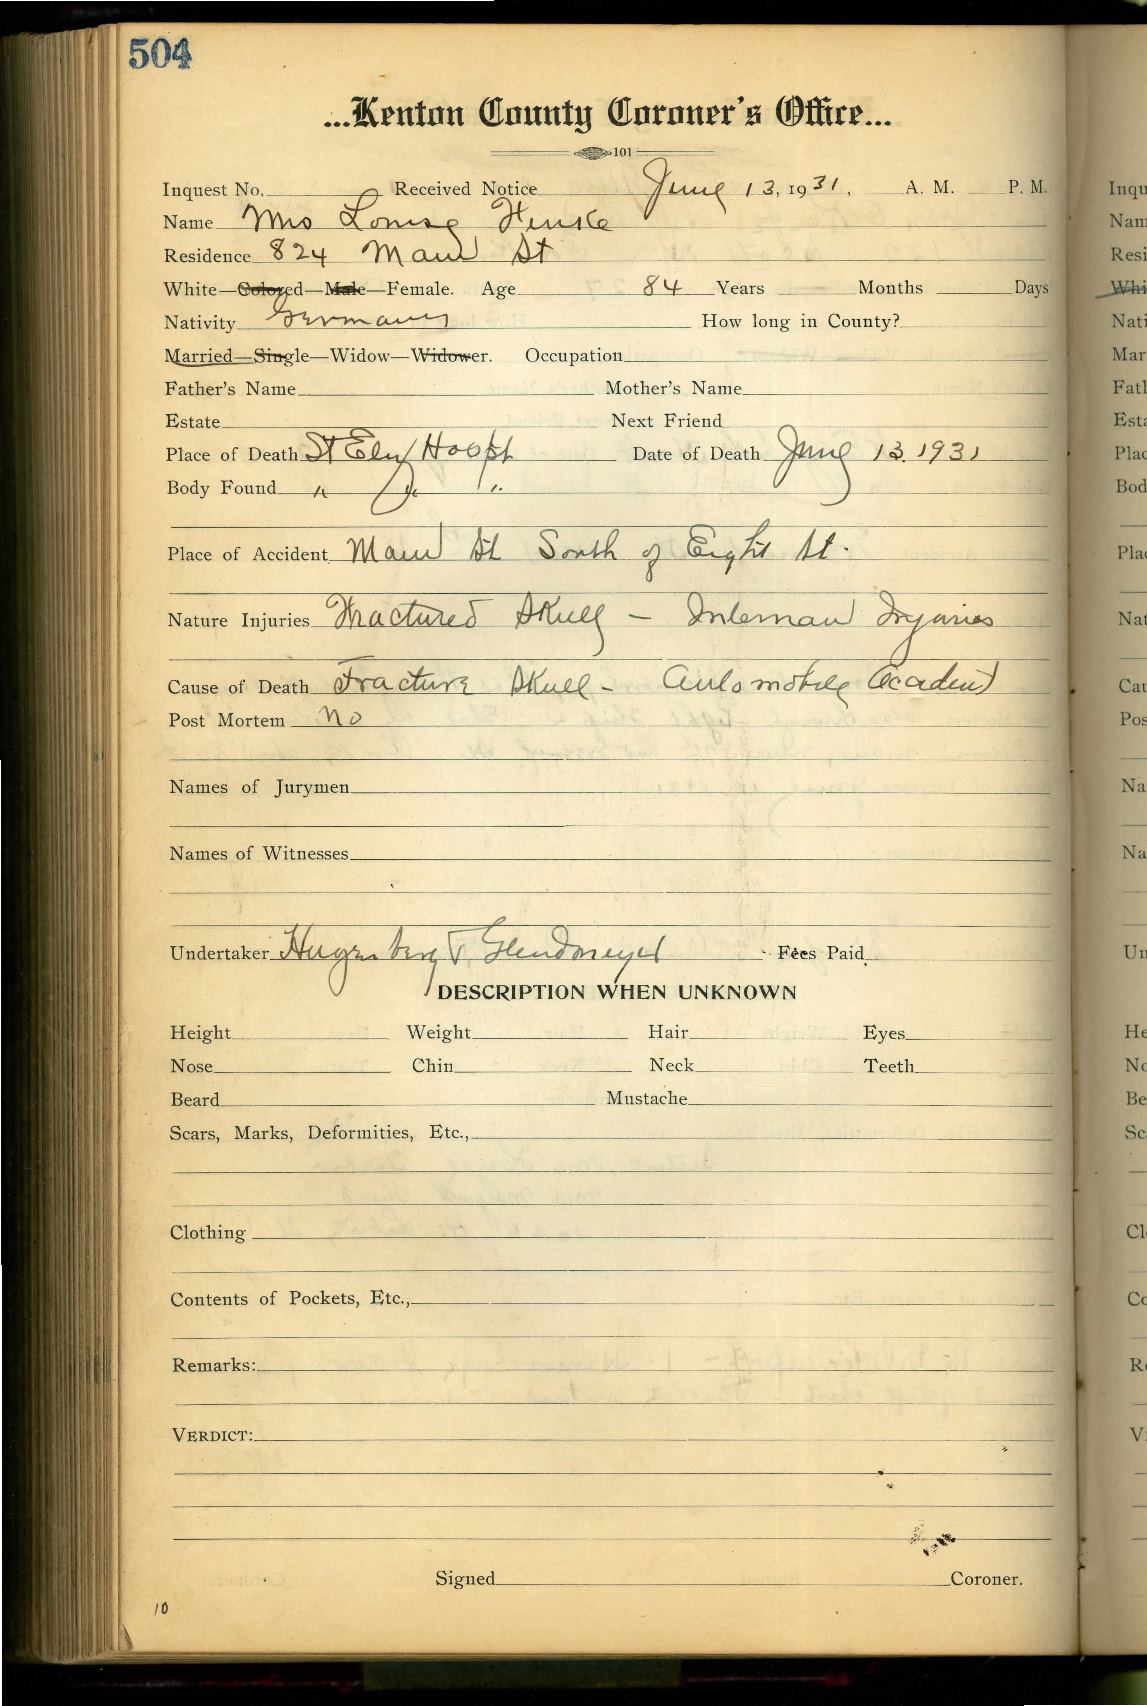 504
...Kenton County Coroner's Office...
101
Inquest No. Received Notice June 13, 1931, A. M. P. M.
Name Mrs Louise Henke
Residence 824 Main St
White—Colored—Male—Female. Age 84 Years Months Days
Nativity Germany How long in County?
Married—Single—Widow—Widower. Occupation
Father's Name Mother's Name
Estate Next Friend
Place of Death St Eliz Hospt Date of Death June 13. 1931
Body Found " " "
Place of Accident Main St South of Eight St.
Nature Injuries Fractured Skull - Internal Injuries
Cause of Death Fracture Skull - Automobile Accident
Post Mortem no
Names of Jurymen
Names of Witnesses
Undertaker Hugenberg & Glendmeyer Fees Paid
DESCRIPTION WHEN UNKNOWN
Height Weight Hair Eyes
Nose Chin Neck Teeth
Beard Mustache
Scars, Marks, Deformities, Etc.,
Clothing
Contents of Pockets, Etc.,
Remarks:
VERDICT:
Signed Coroner.
10